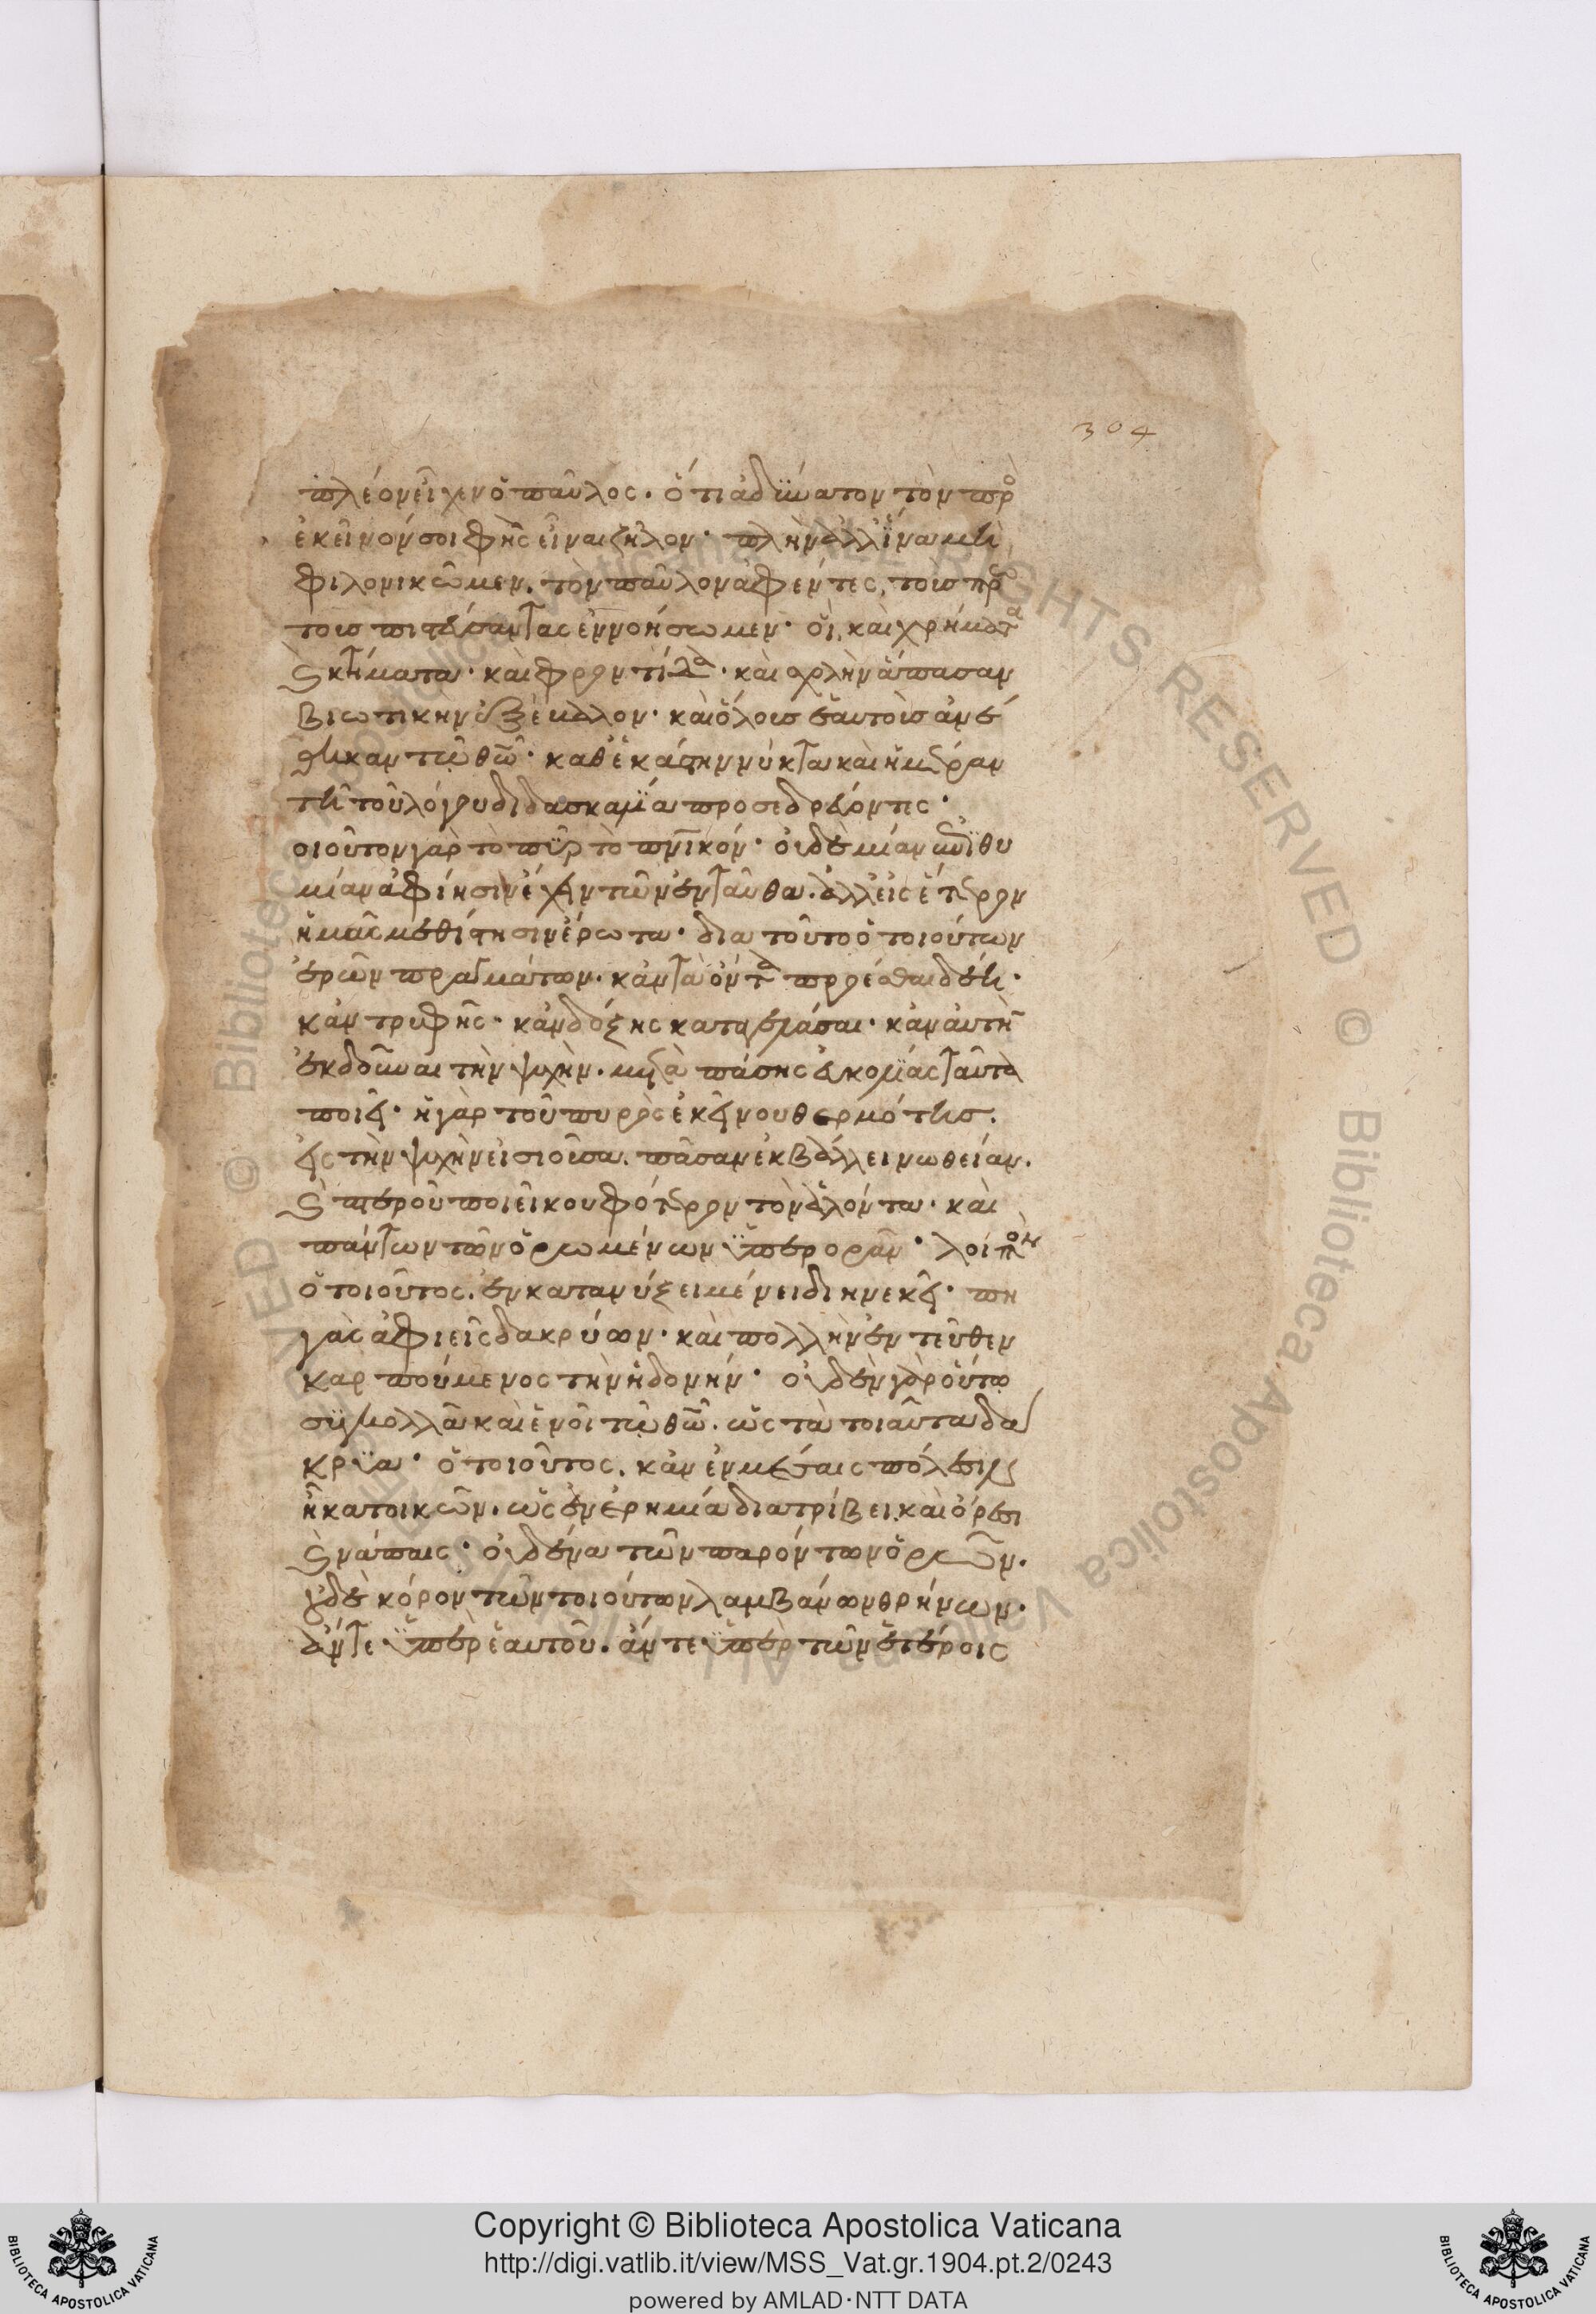 304
πλέον εἶχεν ὁ παῦλος· ὅτι ἀδύνατον τὸν πρὸ
ἐκεῖνόν σοι φὴς εἶναι ζῆλον· πλὴν ἀλλ' ἵνα μὴ
φιλονικῶμεν. τὸν παῦλον ἀφέντες, τοὺς πρώ
τους πιστεύσαντας ἐννοήσωμεν· οἳ, καὶ χρήματα
καὶ κτήματα· καὶ φροντίδα· καὶ σχολὴν ἅπασαν
βιωτικὴν ἐξέβαλον· καὶ ὅλους ἑαυτοὺς ἀνέ
θηκαν τῷ θῶ· καθ' ἑκάστην νύκτα καὶ ἡμέραν
τῆ τοῦ λόγου διδασκαλία προσεδρεύοντες·
οιοῦτον γὰρ τὸ πῦρ τὸ πνικόν· οὐδεμίαν ἐπιθυ
μίαν ἀφίησιν ἔχειν τῶν ἐνταῦθα. ἀλλ' εἰς ἕτερον
ἡμᾶς μεθίστησιν ἔρωτα· δια τοῦτο ὁ τοιούτων
ἐρῶν πραγμάτων. κἂν τὰ ὄντα προέσθαι δέη·
κἂν τρυφῆς· κἂν δόξης καταγελάσαι· κἂν αὐτὴν
ἐκδοῦναι τὴν ψυχὴν. μετὰ πάσης εὐκολίας ταῦτα
ποιεῖ· ἡ γὰρ τοῦ πυρὸς ἐκείνου θερμότης.
εἰς τὴν ψυχὴν εἰσιοῦσα. πᾶσαν ἐκβάλλει νωθείαν.
καὶ πτεροῦ ποιεῖ κουφότερον τὸν ἁλόντα· καὶ
πάντων τῶν ὁρωμένων ὑπερορᾶν· λοιπὸν
ὁ τοιοῦτος. ἐν κατανύξει μένει διηνεκεῖ· πη
γὰς ἀφιεὶς δακρύων· καὶ πολλὴν ἐντεῦθεν
καρπούμενος τὴν ἡδονήν· οὐδὲν γὰρ οὕτω
συγκολλᾶ καὶ ἑνοῖ τῷ θῶ. ὡς τὰ τοιαῦτα δά
κρυα· ὁ τοιοῦτος. κἂν ἐν μέσαις πόλεσιν
ἦ κατοικῶν. ὡς ἐν ἐρημία διατρίβει καὶ ὄρεσι
καὶ νάπαις· οὐδένα τῶν παρόντων ὁρῶν.
οὐδὲ κόρον τῶν τοιούτων λαμβάνων θρήνων·
ἄντε ὑπὲρ ἑαυτοῦ. ἄντε ὑπὲρ τῶν ἑτέροις
Copyright © Biblioteca Apostolica Vaticana
http://digi.vatlib.it/view/MSS_Vat.gr.1904.pt.2/0243
powered by AMLAD·NTT DATA